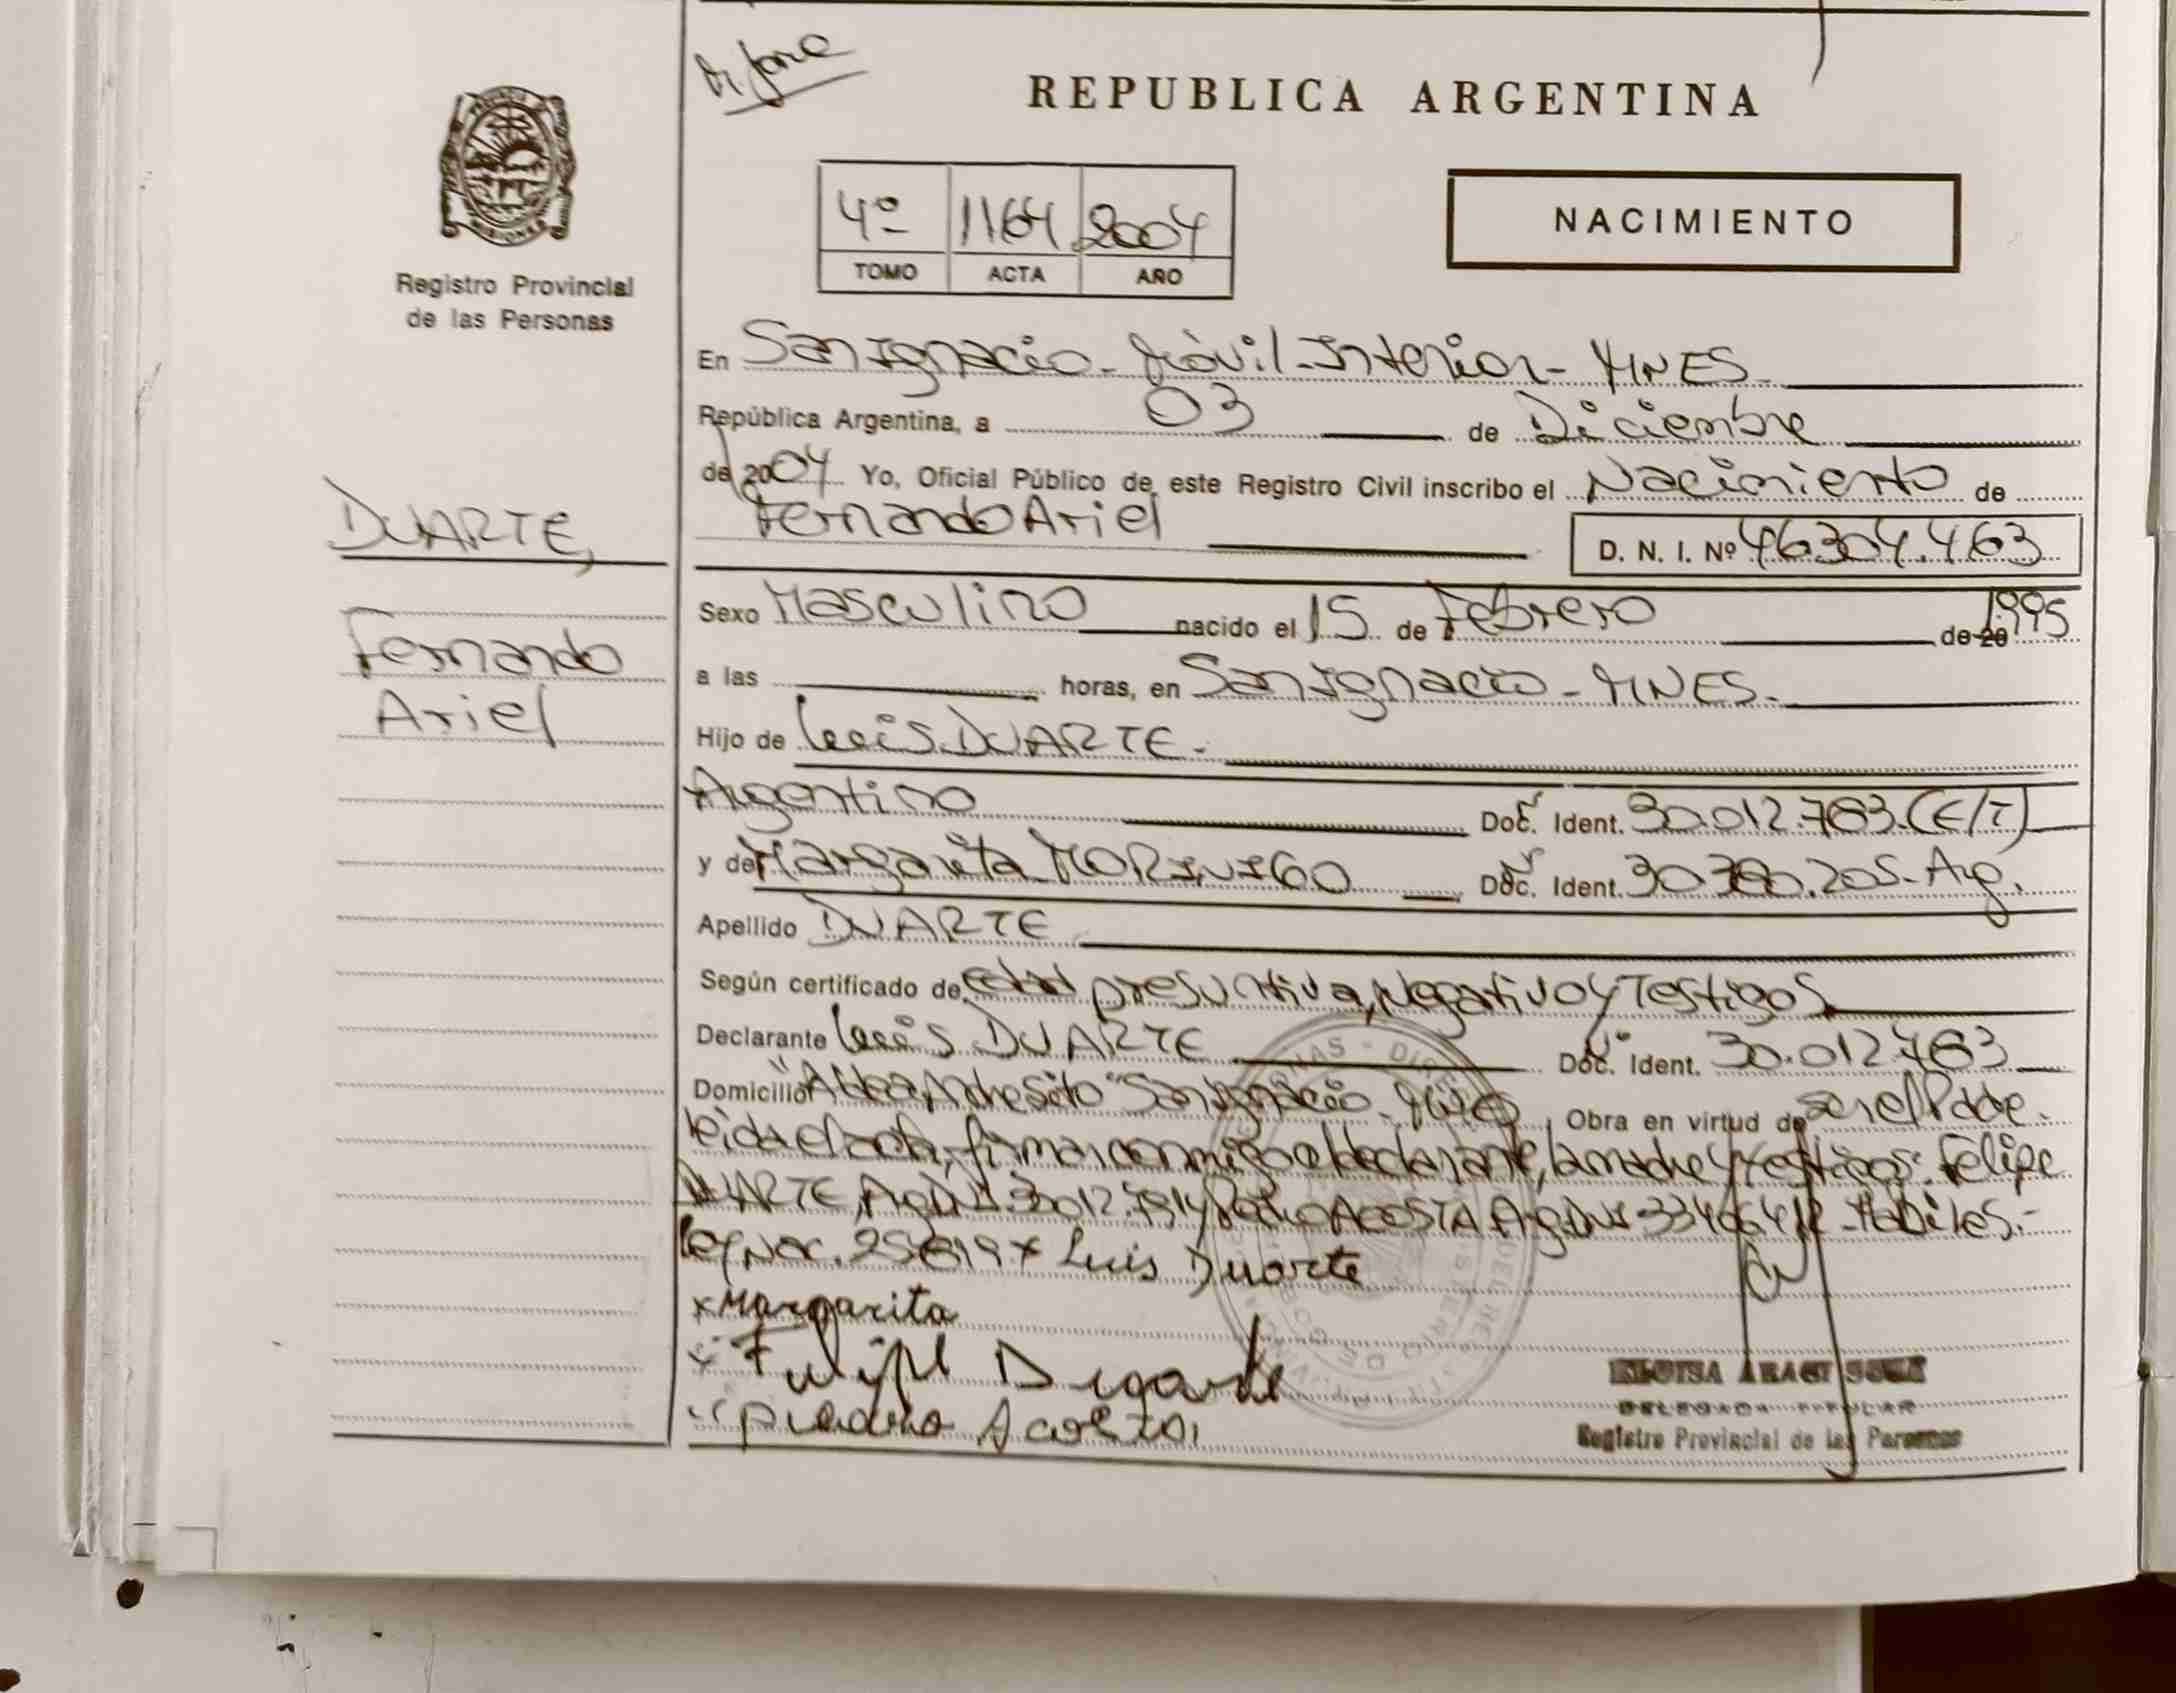 REPUBLICA ARGENTINA
NACIMIENTO
4º 1164 2004
TOMO ACTA AÑO
Registro Provincial
de las Personas
DUARTE,
Fernando
Ariel
En San Ignacio - Móvil - Interior - MNES.
República Argentina, a 03 de Diciembre
de 2004 Yo, Oficial Público de este Registro Civil inscribo el Nacimiento de
Fernando Ariel D. N. I. Nº 46304.463
Sexo Masculino nacido el 15 de Febrero de 20 1995
a las horas, en San Ignacio - MNES.
Hijo de Luis DUARTE.
Argentino Doc. Ident. 30.012.763. (E/T)
y de Margarita MORINIGO Doc. Ident. Arg.
Apellido DUARTE
Según certificado de edad presuntiva, Negativo y Testigos
Declarante Luis DUARTE Doc. Ident. 30.012.763
Domicilio "Aldea Andresito" San Ignacio - Obra en virtud de ser el Padre.
leida el acta, firman conmigo el declarante, la madre y testigos: Felipe
DUARTE, Arg. DNI Pedro ACOSTA Arg. DNI Habiles.-
Ley Nac. 25819 x Luis Duarte
x Margarita
Pedro Acosta
Registro Provincial de las Personas